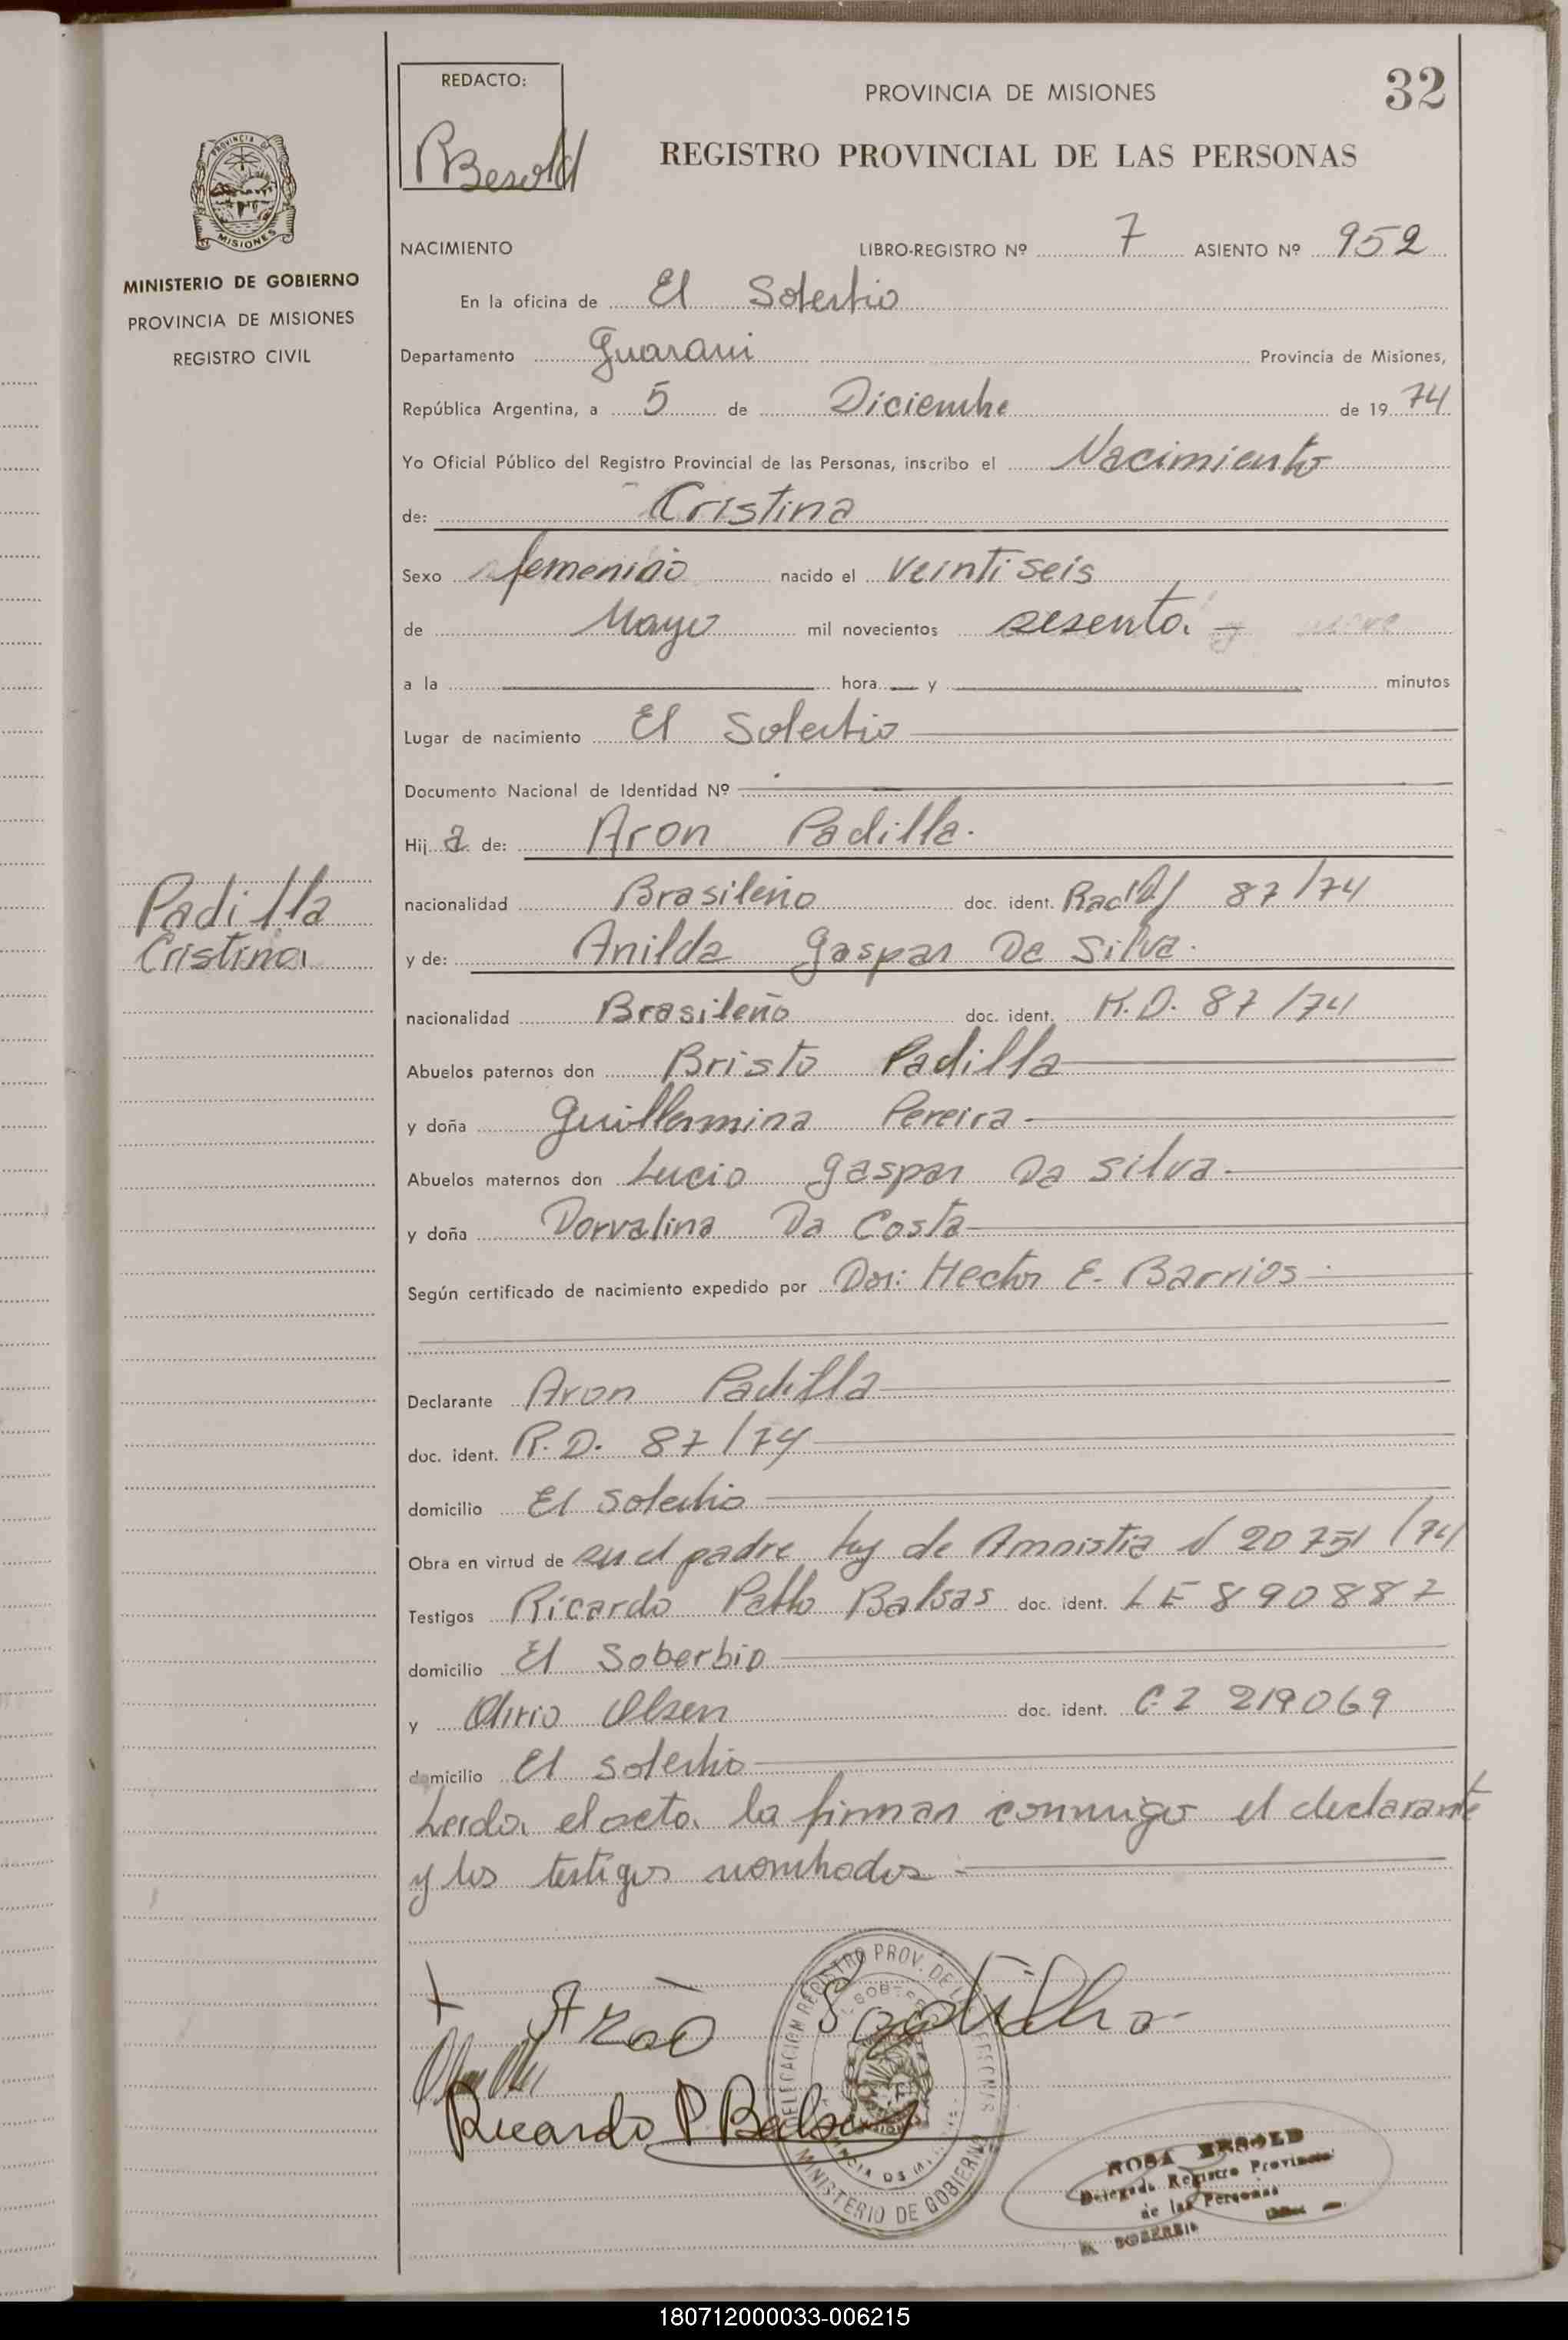 REDACTO:
RBesold
PROVINCIA DE MISIONES
32
REGISTRO PROVINCIAL DE LAS PERSONAS
PROVINCIA DE
MISIONES
MINISTERIO DE GOBIERNO
PROVINCIA DE MISIONES
REGISTRO CIVIL
NACIMIENTO LIBRO-REGISTRO Nº 7 ASIENTO Nº 952
En la oficina de El Soberbio
Departamento Guarani Provincia de Misiones,
República Argentina, a 5 de Diciembre de 1974
Yo Oficial Público del Registro Provincial de las Personas, inscribo el Nacimiento
de: Cristina
Sexo femenino nacido el veintiseis
de Mayo mil novecientos sesenta. -
a la hora y minutos
Lugar de nacimiento El Soberbio
Documento Nacional de Identidad Nº
Hija de: Aron Padilla.
Padilla
Cristina
nacionalidad Brasileño doc. ident. 87/74
y de: Anilda Gaspar Da Silva.
nacionalidad Brasileño doc. ident. R.D. 87/74
Abuelos paternos don Bristo Padilla
y doña Guillermina Pereira
Abuelos maternos don Lucio Gaspar Da Silva
y doña Dorvalina Da Costa
Según certificado de nacimiento expedido por Don: Hector E. Barrios
Declarante Aron Padilla
doc. ident. R.D. 87/74
domicilio El Soberbio
Obra en virtud de ser el padre Ley de Amnistia N 20751/74
Testigos Ricardo Pablo Balsas doc. ident. LE 890887
domicilio El Soberbio
y Olirio Olsen doc. ident. C.I 219069
domicilio El Soberbio
Leida el acta la firman conmigo el declarante
y los testigos nombrados
Arão Padilha
Ricardo P. Balsas
DELEGACION REGISTRO PROV. DE LAS PERSONAS
MINISTERIO DE GOBIERNO
ROSA BESOLD
Delegada Registro Provincial
de las Personas
EL SOBERBIO
180712000033-006215